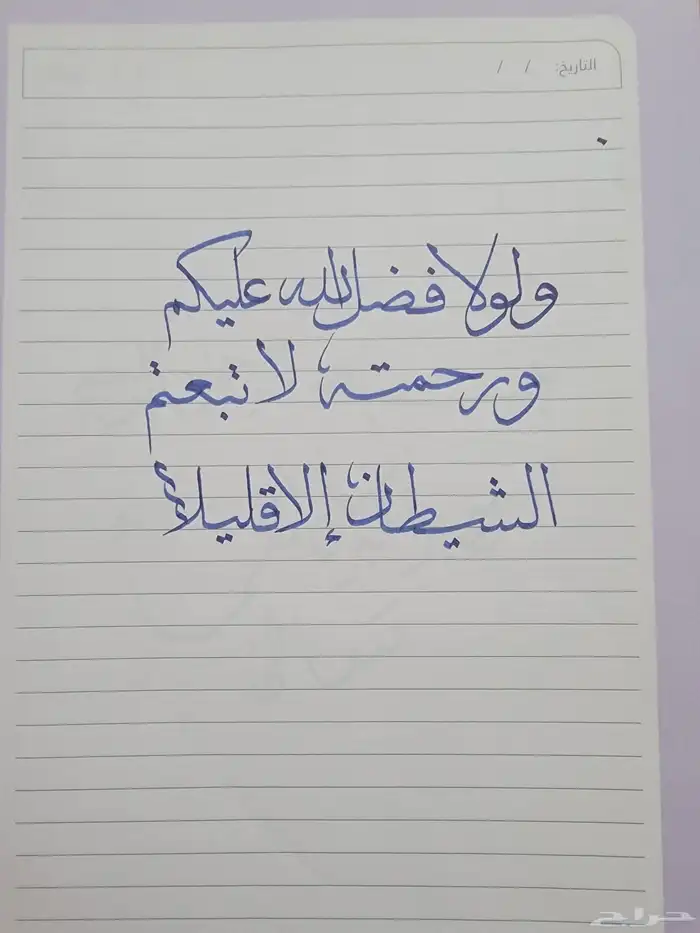 التاريخ: / /
ولولا فضل الله عليكم
ورحمته لا تبعتم
الشيطان إلا قليلاً
حراج